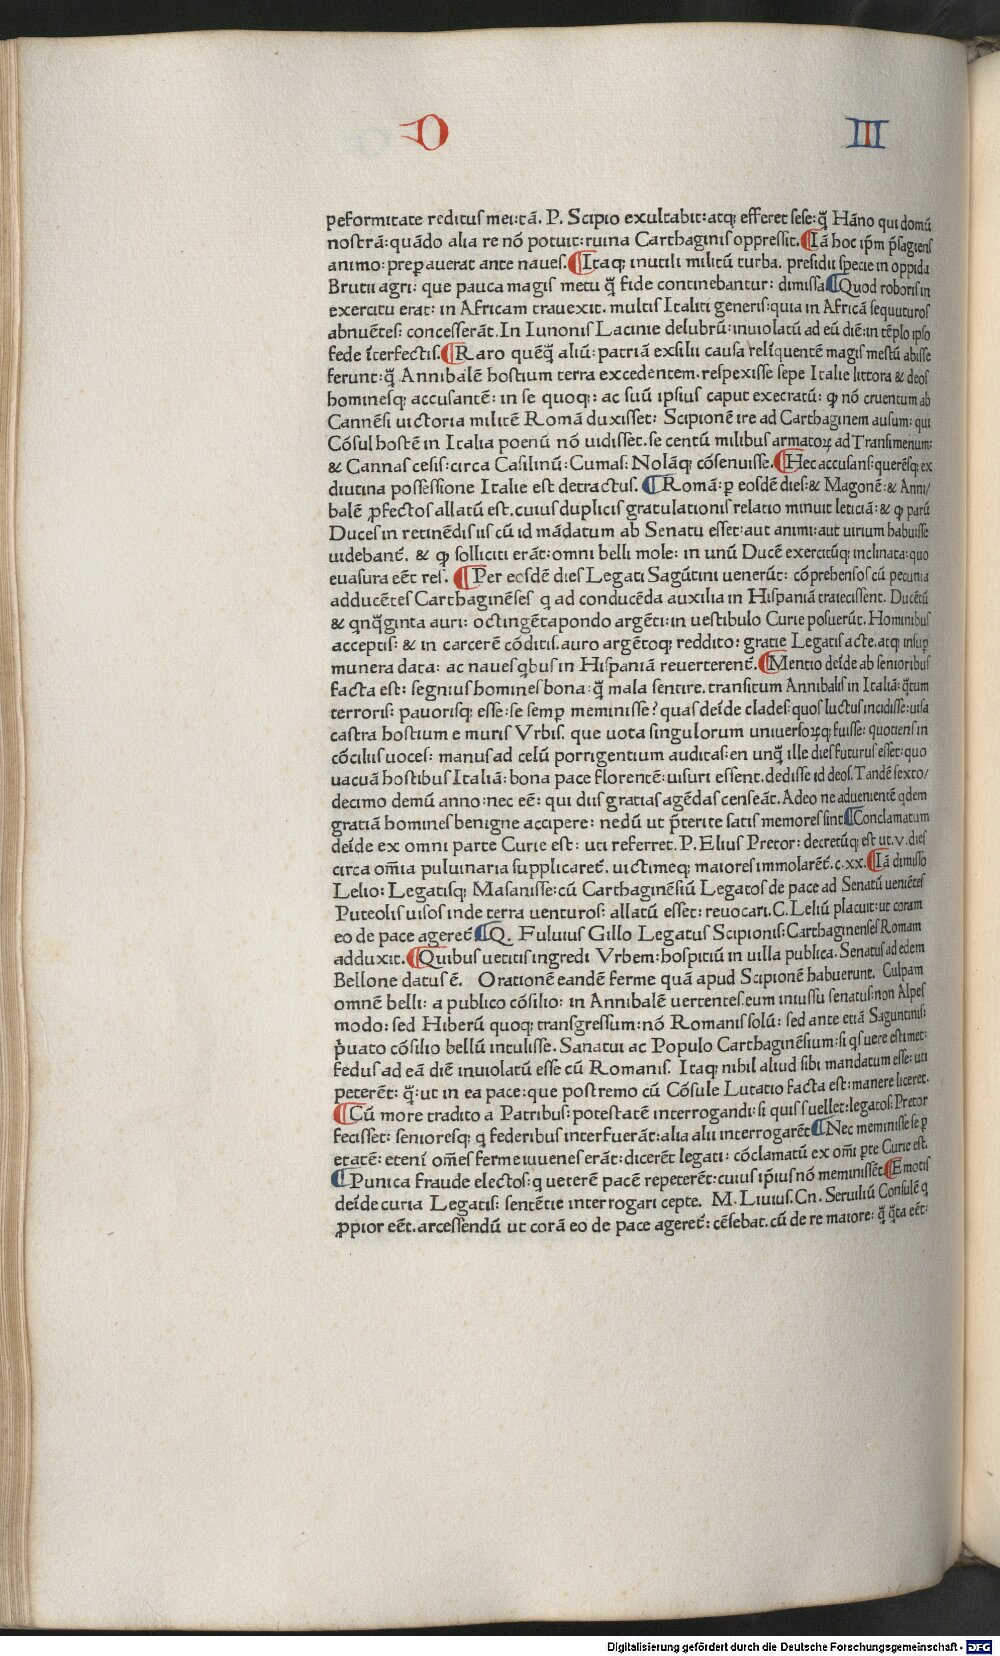 D III
peformitate reditus mei: tā. P. Scipio exultabit: atq; efferet sese: q̄ Hāno qui domū
nostrā: quādo alia re nō potuit: ruina Carthaginis oppressit. ¶Iā hoc ip̄m p̄sagiens
animo: prep̱auerat ante naues. ¶Itaq; inutili militū turba. presidii specie in oppida
Brutii agri: que pauca magis metu q̄ fide continebantur: dimissa ¶Quod roboris in
exercitu erat: in Africam trauexit. multis Italici generis: quia in Africā sequuturos
abnuētes: concesserāt. In Iunonis Lacinie delubrū: inuiolatū ad eū diē: in tēplo ipso
fede īterfectis. ¶Raro quēq̄ aliū: patriā exsilii causa relīquentē magis mestū abisse
ferunt: q̄ Annibalē hostium terra excedentem. respexisse sepe Italie littora & deos
hominesq; accusantē: in se quoq;: ac suū ipsius caput execratū: ꝙ nō cruentum ab
Cannēsi uictoria militē Romā duxisset: Scipionē ire ad Carthaginem ausum: qui
Cōsul hostē in Italia poenū nō uidisset. se centū milibus armatoꝝ ad Transimenum:
& Cannas cesis: circa Casilinū: Cumas: Nolāq; cōsenuisse. ¶Hec accusans: querēsq; ex
diutina possessione Italie est detractus. ¶Romā: p̱ eosdē dies: & Magonē: & Anni/
balē ꝓfectos allatū est. cuius duplicis gratulationis relatio minuit leticiā: & ꝙ parū
Duces in retinēdis iis cū id mādatum ab Senatu esset: aut animi: aut uirium habuisse
uidebanť. & ꝙ solliciti erāt: omni belli mole: in unū Ducē exercitūq; inclinata: quo
euasura eēt res. ¶Per eosdē dies Legati Sagūtini uenerūt: cōprehensos cū pecunia
adducētes Carthaginēses q ad conducēda auxilia in Hispaniā traiecissent. Ducētū
& qnq̄ginta auri: octingētapondo argēti: in uestibulo Curie posuerūt. Hominibus
acceptis: & in carcerē cōditis. auro argētoq; reddito: gratie Legatis acte. atq; insup̱
munera data: ac naues qbus in Hispaniā reuerterenť. ¶Mentio deīde ab senioribus
facta est: segnius homines bona: q̄ mala sentire. transitum Annibalis in Italiā: q̄tum
terroris: pauorisq; esse: se semp̱ meminisse? quas deīde clades: quos luctus incidisse: uisa
castra hostium e muris Vrbis. que uota singulorum uniuersoꝝq; fuisse: quotiens in
cōciliis uoces: manus ad celū porrigentium auditas: en unq̄ ille dies futurus esset: quo
uacuā hostibus Italiā: bona pace florentē: uisuri essent. dedisse id deos. Tandē sexto/
decimo demū anno: nec eē: qui diis gratias agēdas censeāt. Adeo ne aduenientē qdem
gratiā homines benigne accipere: nedū ut p̄terite satis memores sint ¶Conclamatum
deīde ex omni parte Curie est: uti referret. P. Elius Pretor: decretūq; est ut. v. dies
circa om̄ia puluinaria supplicareť. uictimeq; maiores immolarēť. c.xx. ¶Iā dimisso
Lelio: Legatisq; Masanisse: cū Carthaginēsiū Legatos de pace ad Senatū ueniētes
Puteolis uisos inde terra uenturos: allatū esset: reuocari. C. Leliū placuit: ut coram
eo de pace ageretť ¶Q. Fuluius Gillo Legatus Scipionis: Carthaginenses Romam
adduxit. ¶Quibus uetitis ingredi Vrbem: hospitiū in uilla publica. Senatus ad edem
Bellone datus ē. Orationē eandē ferme quā apud Scipionē habuerunt. Culpam
omnē belli: a publico cōsilio: in Annibalē uertentes. eum iniussu senatus: non Alpes
modo: sed Hiberū quoq; transgressum: nō Romanis solū: sed ante etiā Saguntinis:
p̄uato cōsilio bellū intulisse. Sanatui ac Populo Carthaginēsium: si qs uere estimet:
fedus ad eā diē inuiolatū esse cū Romanis. Itaq; nihil aliud sibi mandatum esse: uti
peterēt: q̄: ut in ea pace: que postremo cū Cōsule Lutatio facta est: manere liceret.
¶Cū more tradito a Patribus: potestatē interrogandi: si quis fuellet: legatos: Pretor
fecisset: senioresq; q federibus interfuerāt: alia alii interrogarēt ¶Nec meminisse se p̱
etatē: etenī om̄es ferme iuuenes erāt: dicerēt legati: cōclamatū ex om̄i p̱te Curie est.
¶Punica fraude electos: q ueterē pacē repeterēt: cuius ip̄ius nō meminissēt. ¶Emotis
deīde curia Legatis: sentētie interrogari cepte. M. Liuius. Cn. Seruiliū Consulē q
ꝓpior eēt. arcessendū ut corā eo de pace ageretť: cēsebat. cū de re maiore: q̄ q̄ta eēt:
Digitalisierung gefördert durch die Deutsche Forschungsgemeinschaft - DFG